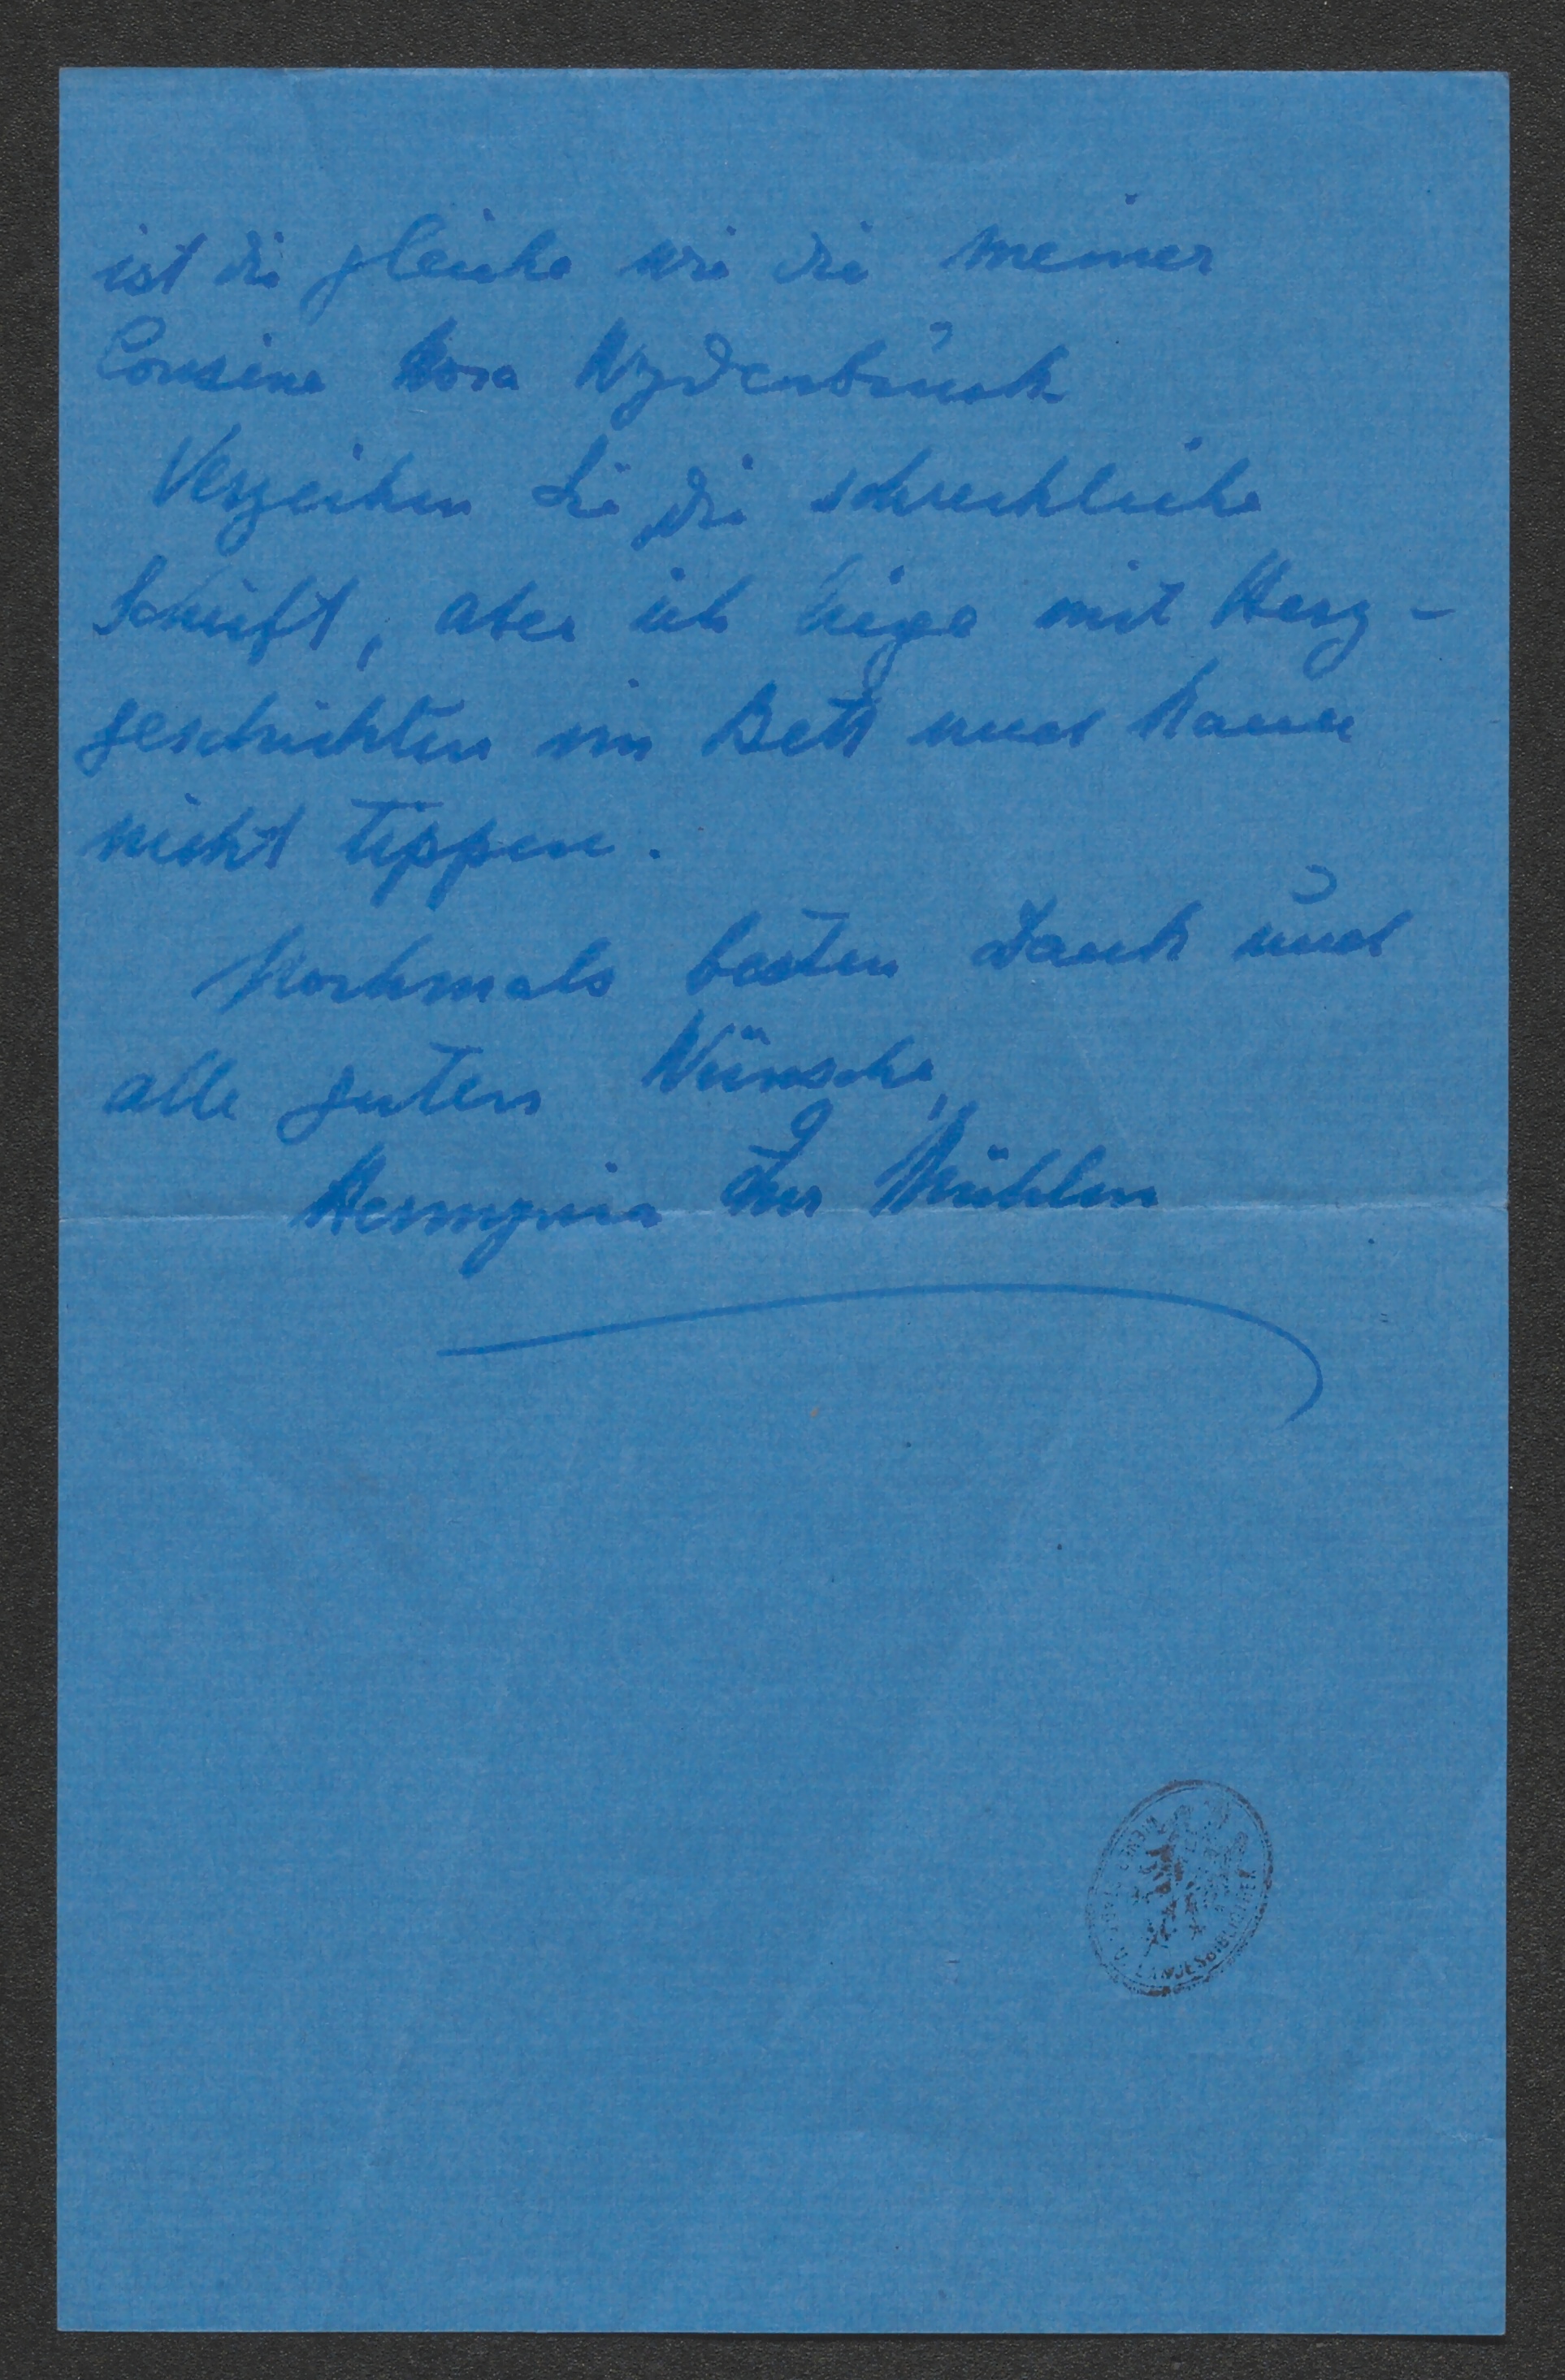 ist die gleiche wie die meiner
Cousine Nora Wydenbruck
Verzeihen Sie die schreckliche
Schrift, aber ich liege mit Herz-
geschichten im Bett und kann
nicht tippen.
Nochmals besten Dank und
alle guten Wünsche,
Hermynia Zur Mühlen
LANDESBIBLIOTHEK